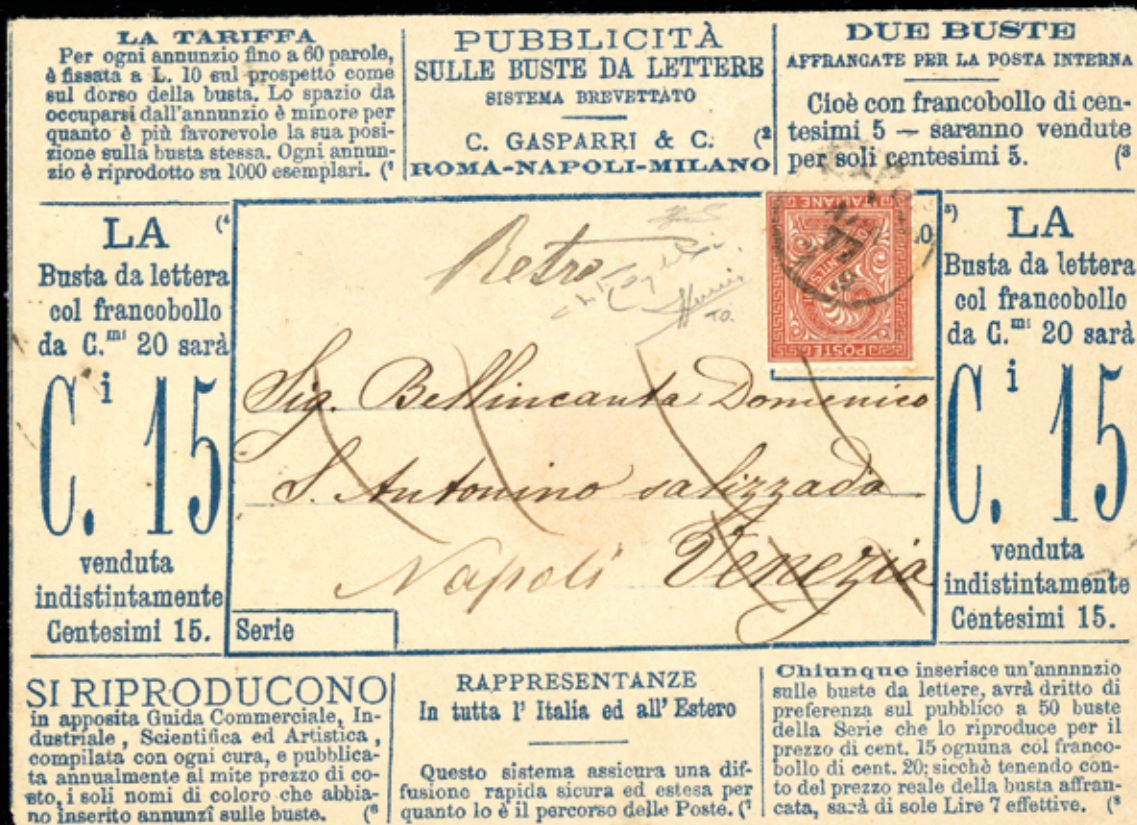 LA TARIFFA
Per ogni annunzio fino a 60 parole,
è fissata a L. 10 sul prospetto come
sul dorso della busta. Lo spazio da
occuparsi dall'annunzio è minore per
quanto è più favorevole la sua posi-
zione sulla busta stessa. Ogni annun-
zio è riprodotto su 1000 esemplari. (¹
PUBBLICITÀ
SULLE BUSTE DA LETTERE
SISTEMA BREVETTATO
C. GASPARRI & C. (²
ROMA-NAPOLI-MILANO
DUE BUSTE
AFFRANCATE PER LA POSTA INTERNA
Cioè con francobollo di cen-
tesimi 5 — saranno vendute
per soli centesimi 5. (³
(⁴
LA
Busta da lettera
col francobollo
da C.ᵐⁱ 20 sarà
C.ⁱ 15
venduta
indistintamente
Centesimi 15.
Retro
POSTE
ITALIANE
77
Sig. Bellincanta Domenico
S. Antonino salizzada
Napoli Venezia
Serie
⁵)
LA
Busta da lettera
col francobollo
da C.ᵐⁱ 20 sarà
C.ⁱ 15
venduta
indistintamente
Centesimi 15.
SI RIPRODUCONO
in apposita Guida Commerciale, In-
dustriale, Scientifica ed Artistica,
compilata con ogni cura, e pubblica-
ta annualmente al mite prezzo di co-
sto, i soli nomi di coloro che abbia-
no inserito annunzî sulle buste. (⁶
RAPPRESENTANZE
In tutta l' Italia ed all' Estero
Questo sistema assicura una dif-
fusione rapida sicura ed estesa per
quanto lo è il percorso delle Poste. (⁷
Chiunque inserisce un'annnnzio
sulle buste da lettere, avrà dritto di
preferenza sul pubblico a 50 buste
della Serie che lo riproduce per il
prezzo di cent. 15 ognuna col franco-
bollo di cent. 20; sicchè tenendo con-
to del prezzo reale della busta affran-
cata, sarà di sole Lire 7 effettive. (⁸